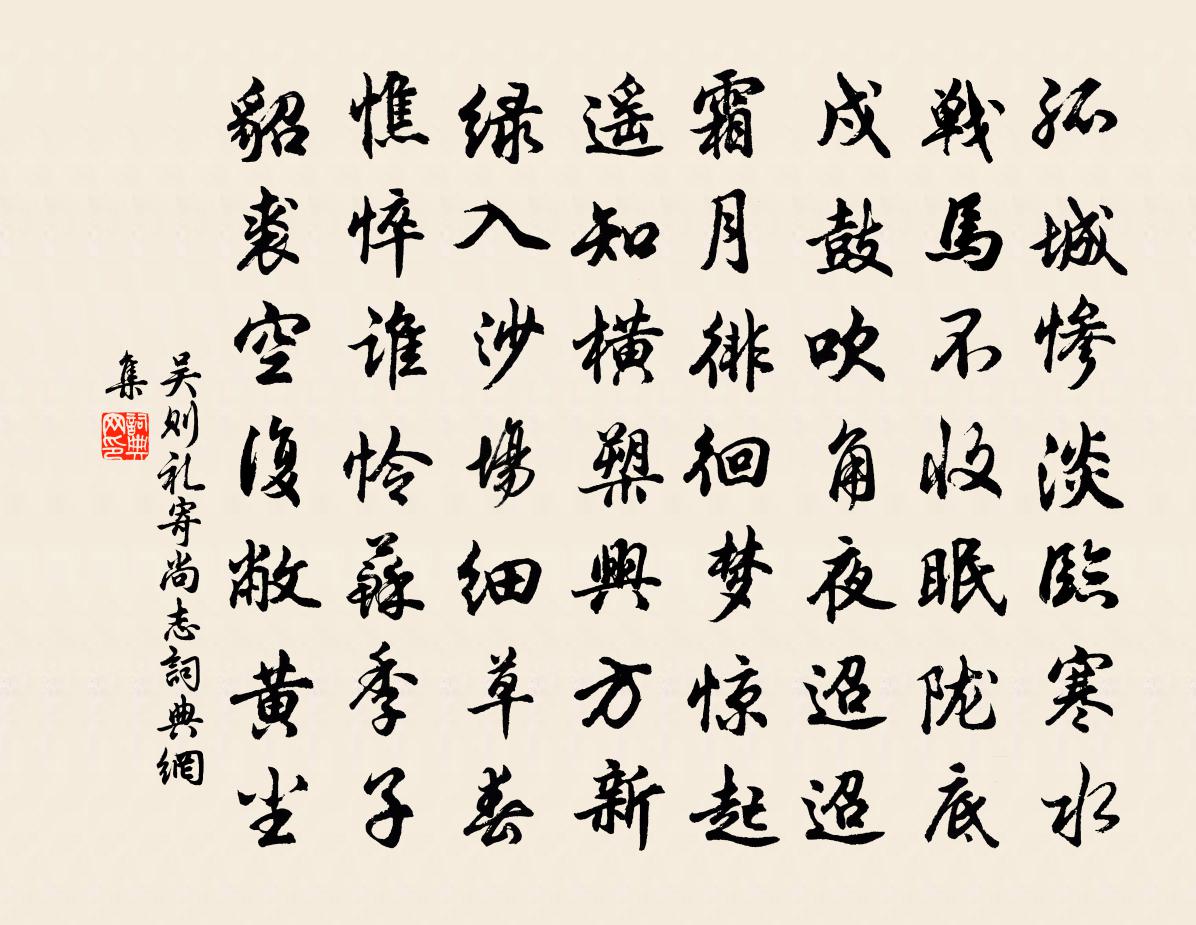 孤城惨淡臨寒水
戰馬不收眠陇底
戍鼓吹角夜迢迢
霜月徘徊梦惊起
遥知横槊興方新
绿入沙場细草春
憔悴谁怜蘇季子
貂裘空復敝黄尘
吴则礼寄尚志詞典網
集
詞典网印